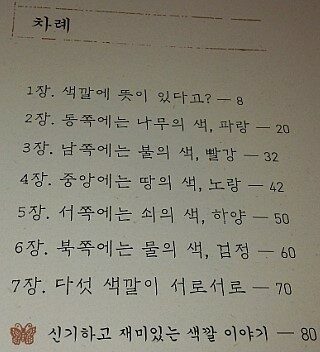 차례
1장. 색깔에 뜻이 있다고? — 8
2장. 동쪽에는 나무의 색, 파랑 — 20
3장. 남쪽에는 불의 색, 빨강 — 32
4장. 중앙에는 땅의 색, 노랑 — 42
5장. 서쪽에는 쇠의 색, 하양 — 50
6장. 북쪽에는 물의 색, 검정 — 60
7장. 다섯 색깔이 서로서로 — 70
신기하고 재미있는 색깔 이야기 — 80